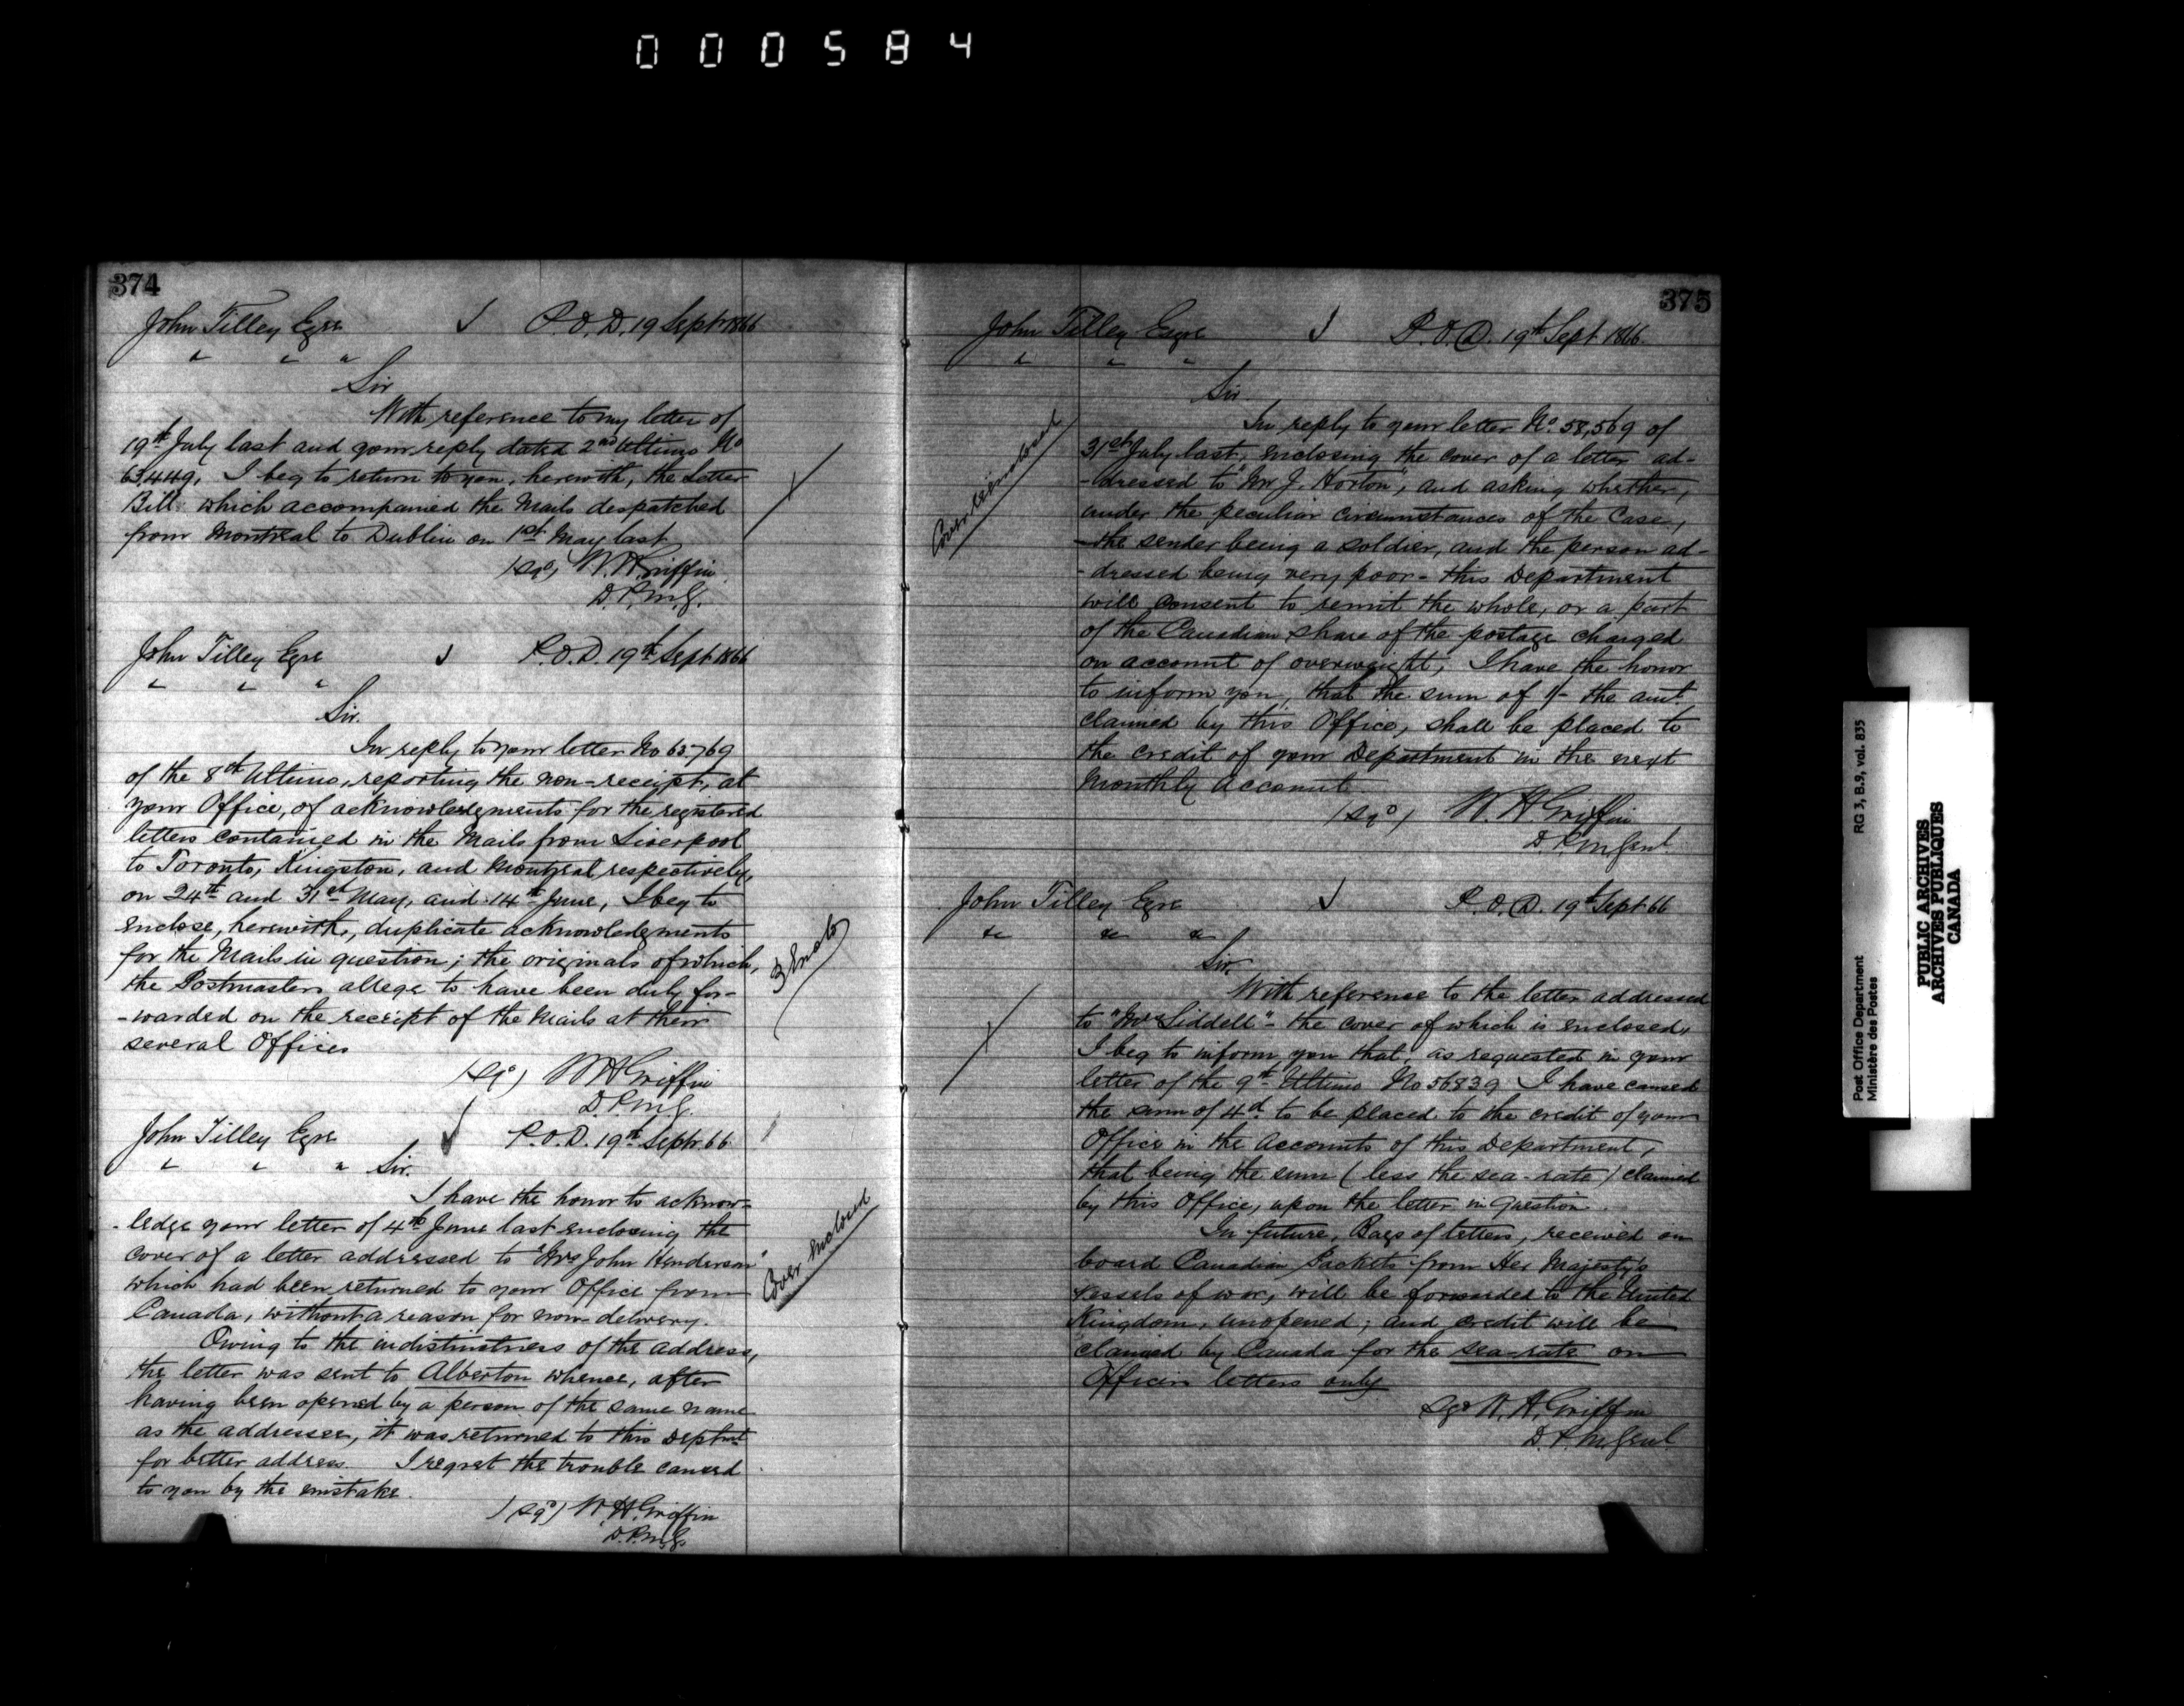 000584
374
John Tilley Esqre P.O.D. 19 Septr 1866
" " "
Sir
With reference to my letter of
19th July last and your reply dated 2nd Ultimo No
63,449, I beg to return to you, herewith, the Letter
Bill which accompanied the Mails despatched
from Montreal to Dublin on 1st May last
(sgd) W. H. Griffin
D.P.M.G.
John Tilley Esqre P.O.D. 19th Sept 1866
" " "
Sir.
In reply to your letter No 65769
of the 8th Ultimo, reporting the non-receipt, at
your Office, of acknowledgments for the registered
letters contained in the Mails from Liverpool
to Toronto, Kingston, and Montreal respectively,
on 24th and 31st May, and 14th June, I beg to
enclose, herewith, duplicate acknowledgments
for the Mails in question; the originals of which,
the Postmasters allege to have been duly for-
-warded on the receipt of the Mails at their
several Offices
3 Enclo
(sgd) W H Griffin
D.P.M.G.
John Tilley Esqre P.O.D. 19th Septr. 66
" " " Sir.
I have the honor to acknow-
-ledge your letter of 4th June last enclosing the
cover of a letter addressed to "Mrs John Henderson"
which had been returned to your Office from
Canada, without a reason for non-delivery.
Cover enclosed
Owing to the indistinctness of the address,
the letter was sent to Alberton whence, after
having been opened by a person of the same name
as the addressee, it was returned to this Deptmt
for better address. I regret the trouble caused
to you by the mistake.
(sgd) W. H. Griffin
D.P.M.G.
375
John Tilley Esqre P.O.D. 19th Sept 1866.
" " "
Sir
In reply to your letter No. 58,569 of
31st July last, enclosing the cover of a letter ad-
-dressed to "Mr J. Horton", and asking whether,
under the peculiar circumstances of the Case,
-the sender being a soldier, and the person ad-
-dressed being very poor - this Department
will consent to remit the whole, or a part
of the Canadian share of the postage charged
on account of overweight, I have the honor
to inform you, that the sum of 1/- the amt.
claimed by this Office, shall be placed to
the credit of your Department in the next
Monthly Account
(sgd) W. H Griffin
D.P.M Genl.
John Tilley Esqre P.O.D. 19th Sept 66
&c &c &c
Sir.
With reference to the letter addressed
to "Mrs Liddell" - the cover of which is enclosed,
I beg to inform you that, as requested in your
letter of the 9th Ultimo No 56839 I have caused
the sum of 4d. to be placed to the credit of your
Office in the Accounts of this Department,
that being the sum (less the sea-rate) claimed
by this Office, upon the letter in question.
In future, Bags of letters, received on
board Canadian Packets from Her Majesty's
vessels of war, will be forwarded to the United
Kingdom, unopened; and credit will be
claimed by Canada for the sea-rate on
Officers letters only
Sgd W. H. Griffin
D.P.M Genl
Post Office Department RG 3, B.9, vol. 835
Ministère des Postes
PUBLIC ARCHIVES
ARCHIVES PUBLIQUES
CANADA